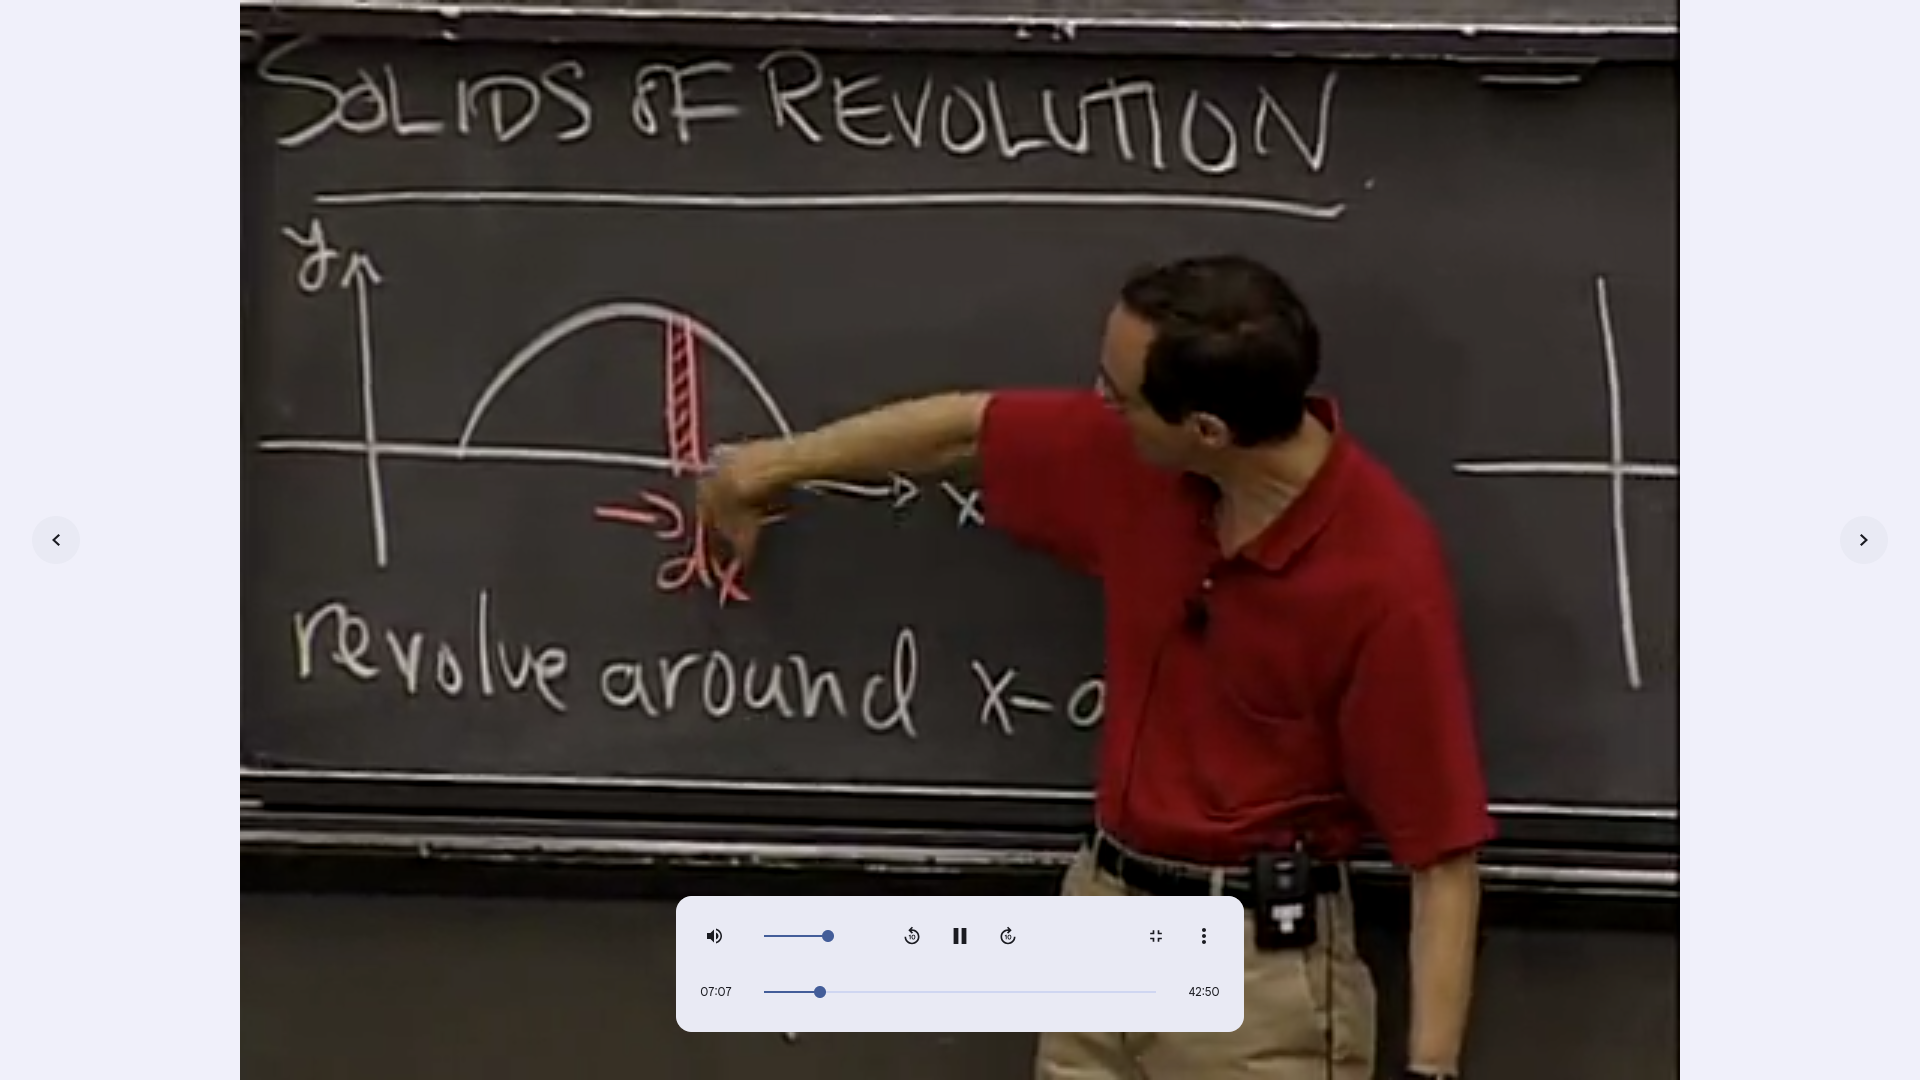 SOLIDS OF REVOLUTION
y
x
dx
revolve around x-a
10
10
07:07
42:50